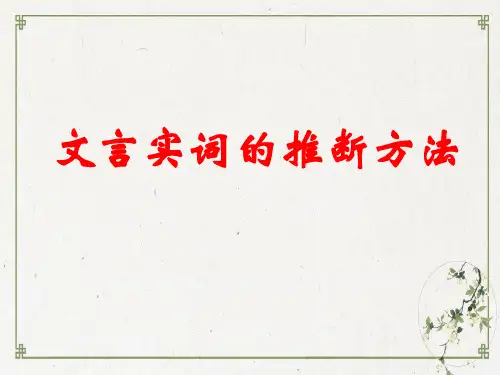 文言实词的推断方法